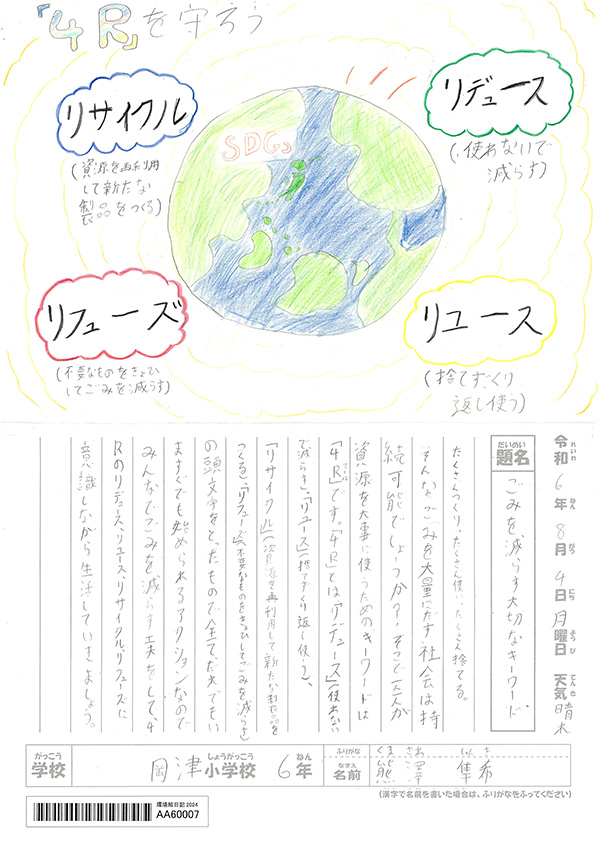 「4R」を守ろう
リサイクル
(資源を再利用
して新たな
製品をつくる)
SDGs
リデュース
(使わないで
減らす)
リフューズ
(不要なものをきょひ
してごみを減らす)
リユース
(捨てずくり
返し使う)
令和6年8月4日月曜日 天気晴れ
れいわ ねん がつ にち ようび てんき
だいめい
題名 ごみを減らす大切なキーワード
たくさんつくり、たくさん使い、たくさん捨てる。
そんなごみを大量にだす社会は持
続可能でしょうか?そこで一人一人が
資源を大事に使うためのキーワードは
「4R」です。「4R」とは「リデュース」(使わない
で減らす)、「リユース」(捨てずくり返し使う)、
「リサイクル」(資源を再利用して新たな製品を
つくる)、「リフューズ」(不要なものをきょひしてごみを減らす)
の頭文字をとったもので全てだれでもい
ますぐでも始められるアクションなので
みんなでごみを減らす工夫をして、4
Rのリデュース、リユース、リサイクル、リフューズに
意識しながら生活していきましょう。
がっこう しょうがっこう ねん
学校 岡津小学校 6年
ふりがな くま
なまえ
名前 熊澤 希
(漢字で名前を書いた場合は、ふりがなをふってください)
環境絵日記2024
AA60007